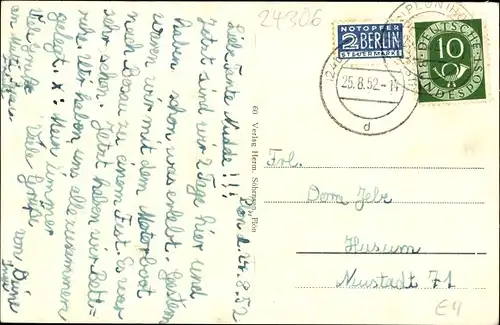 24306
NOTOPFER
2 BERLIN
STEUERMARKE
DEUTSCHE
10
BUNDESPOST
PLÖN
25.8.52-14
d
60 Verlag Herm. Söhrensen, Plön
Plön d. 24.8.52
Liebe Tante !!!
Jetzt sind wir 2 Tage hier und
haben schon was erlebt. Gestern
waren wir mit dem Motorboot
nach Bosau zu einem Fest. Es war
sehr schön. Jetzt haben wir Bett=
ruh. Wir haben uns alle zusammen
gelegt.
Viele Grüße
von Deine
Frl.
Dora Jebe
Husum
Neustadt 71
E4